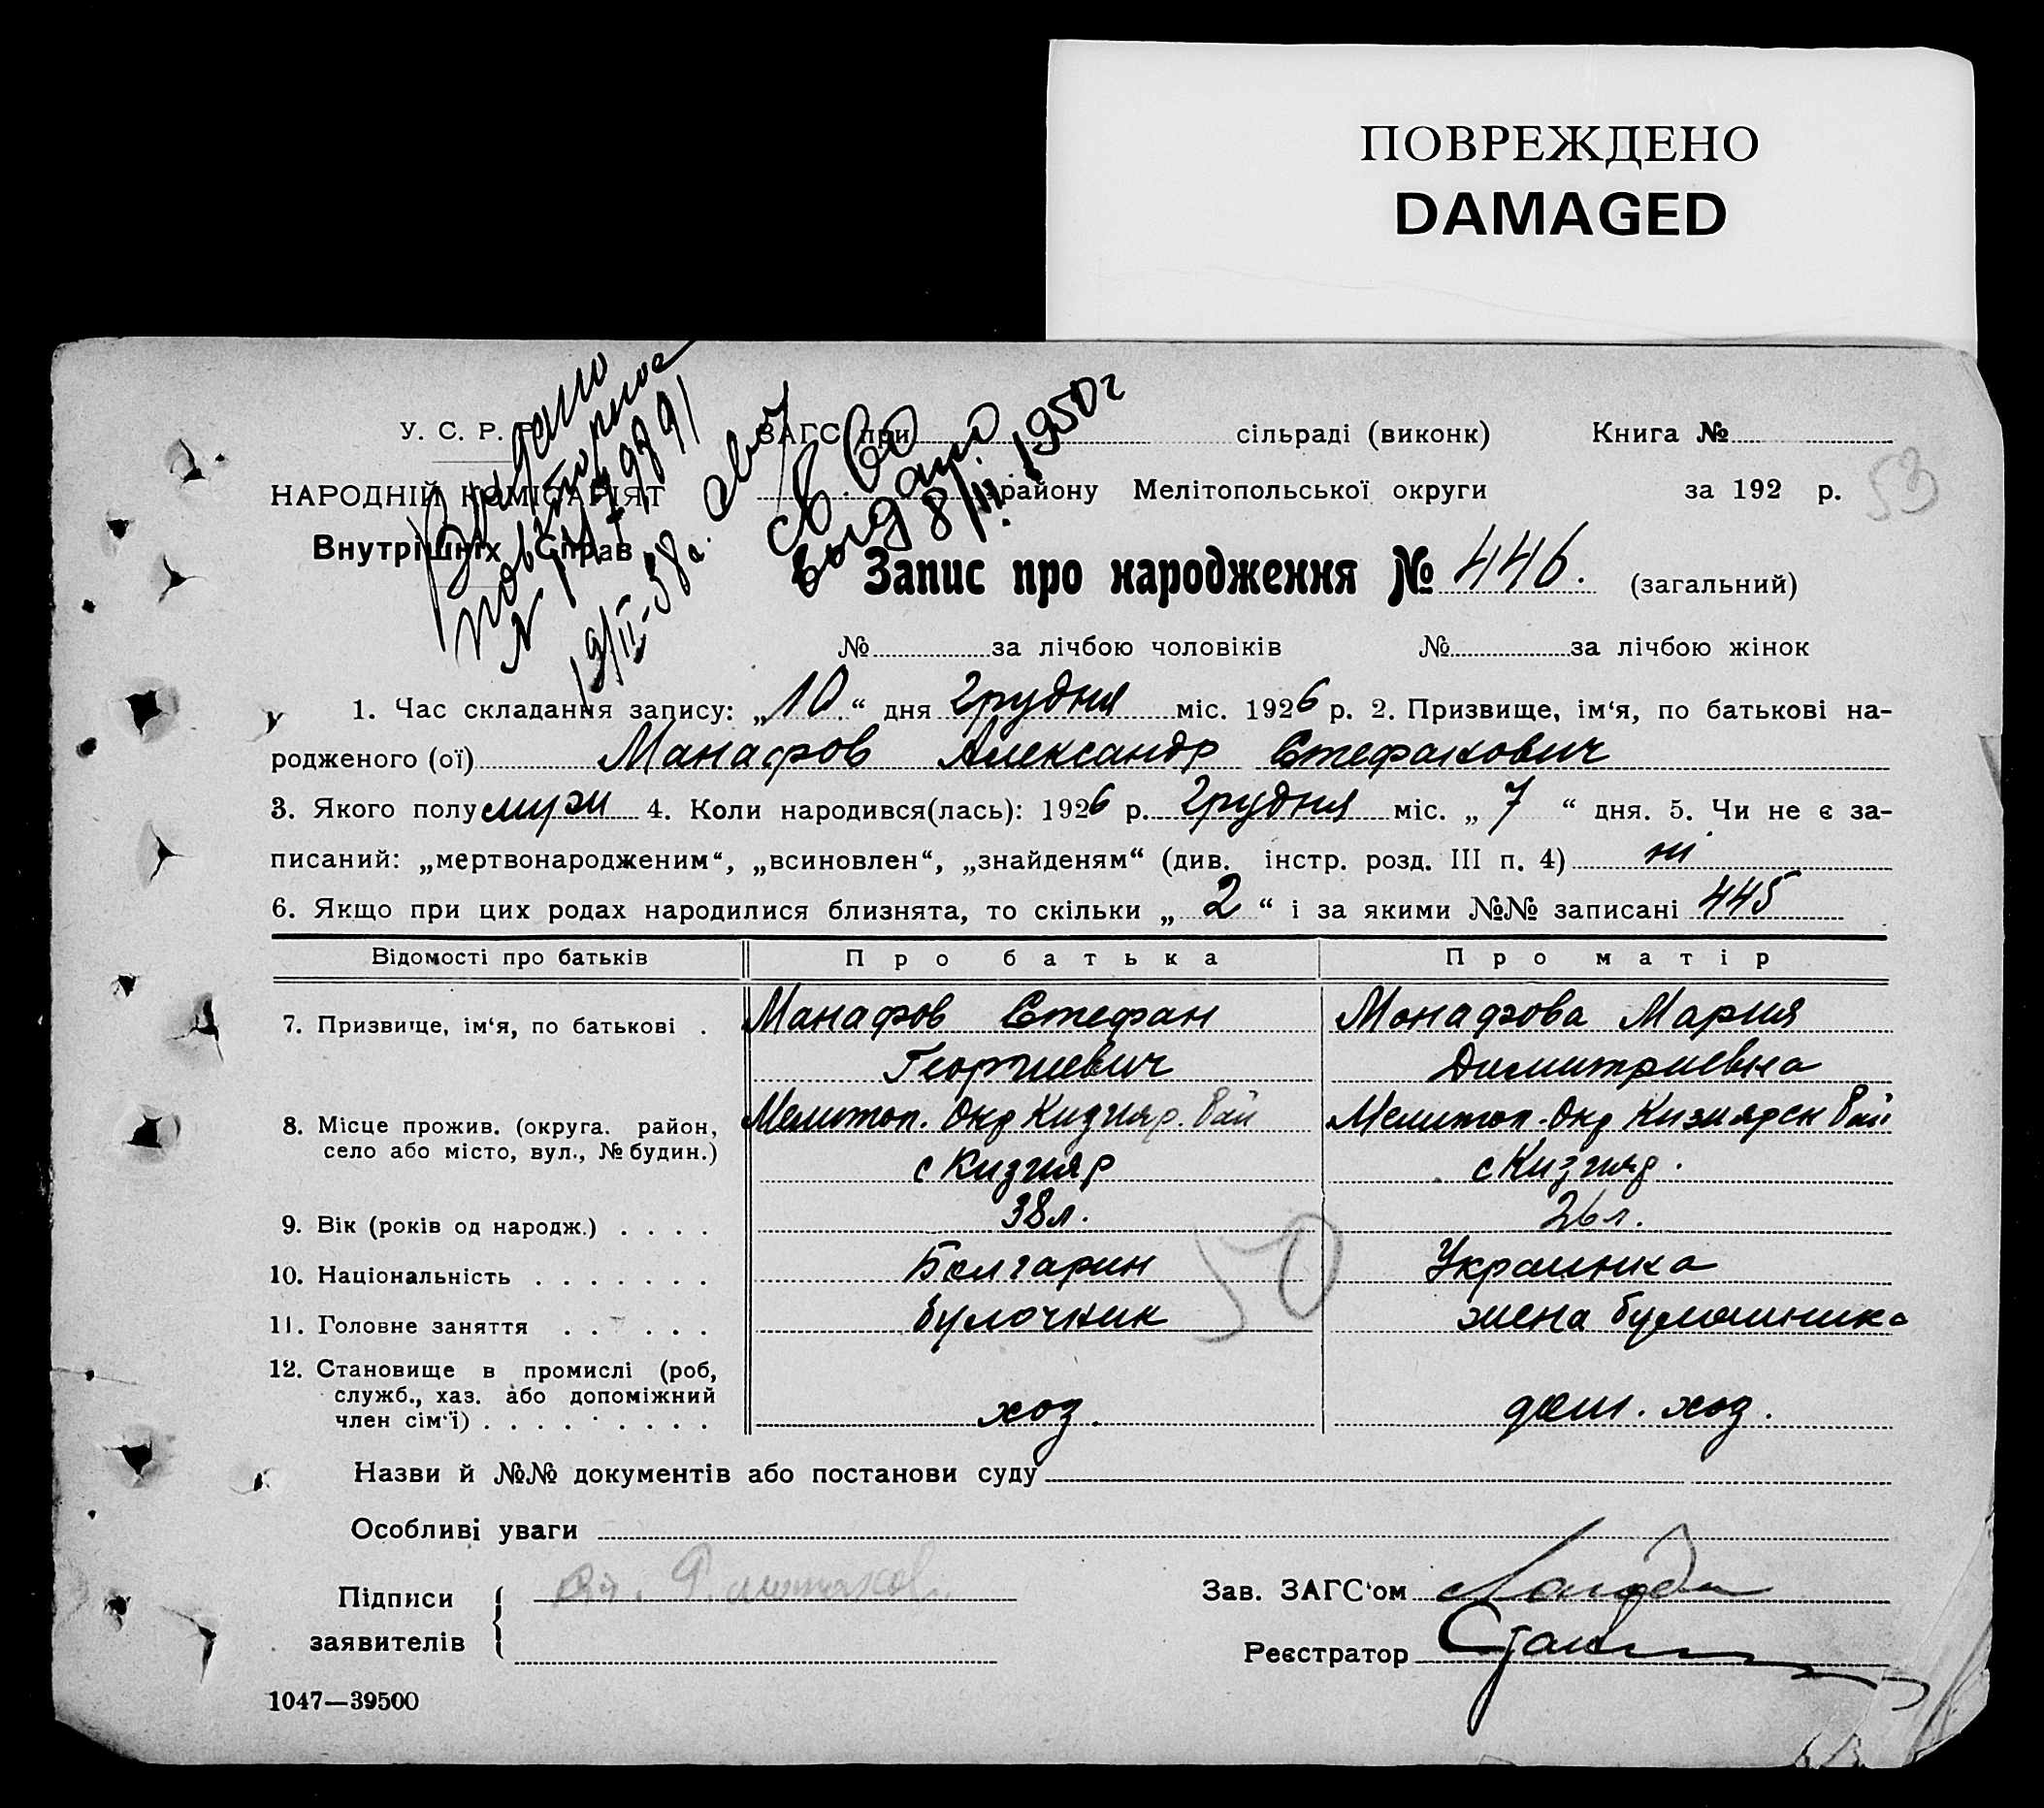 ПОВРЕЖДЕНО
DAMAGED
У. С. Р. Р.
НАРОДНІЙ КОМІСАРІЯТ
Внутрішніх Справ
Видано
повторное
19/II-38
ЗАГС при сільраді (виконк) Книга №
району Мелітопольської округи за 192 р.
53
св во
выдано
8/II 1950 г
Запис про народження № 446. (загальний)
№ за лічбою чоловіків № за лічбою жінок
1. Час складання запису: „10“ дня грудня міс. 1926 р. 2. Призвище, ім‘я, по батькові на-
родженого (ої) Манафов Александр Стефанович
3. Якого полу мужи 4. Коли народився(лась): 1926 р. грудня міс. „7“ дня. 5. Чи не є за-
писаний: „мертвонародженим“, „всиновлен“, „знайденям“ (див. інстр. розд. III п. 4) ні
6. Якщо при цих родах народилися близнята, то скільки „2“ і за якими №№ записані 445
Відомості про батьків Про батька Про матір
7. Призвище, ім‘я, по батькові . Манафов Стефан Монафова Мария
Георгиевич Димитриевна
8. Місце прожив. (округа. район, Мелитоп. Окр Кизияр. Рай Мелитоп. Окр Кизиярск Рай
село або місто, вул., № будин.) с Кизияр с Кизияр.
9. Вік (років од народж.) . . . . 38 л. 26 л.
10. Національність . . . . . . . Болгарин Украинка
50
11. Головне заняття . . . . . . булочник жена булошника
12. Становище в промислі (роб,
служб., хаз. або допоміжний
член сім‘ї) . . . . . . . . . хоз. дом. хоз.
Назви й №№ документів або постанови суду
Особливі уваги
Підписи
заявителів
Зав. ЗАГС‘ом
Реєстратор
1047—39500